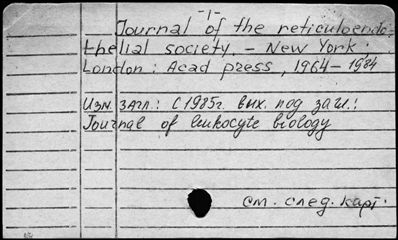 -1-
Journal of the reticuloendo-
thelial society. – New York.
London: Acad press, 1964–1984
Изм. загл.: С 1985г. вых. под загл.:
Journal of leukocyte biology
См. след. карт.